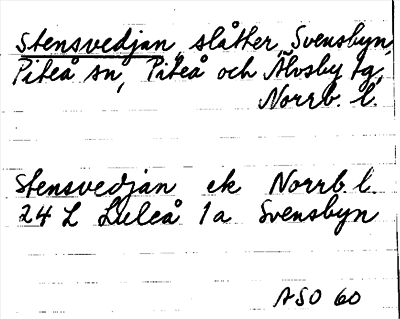 Stensvedjan, slåtter, Svensbyn,
Piteå sn, Piteå och Älvsby tg,
Norrb. l.
Stensvedjan ek Norrb. l.
24 L Luleå 1a Svensbyn
ASO 60